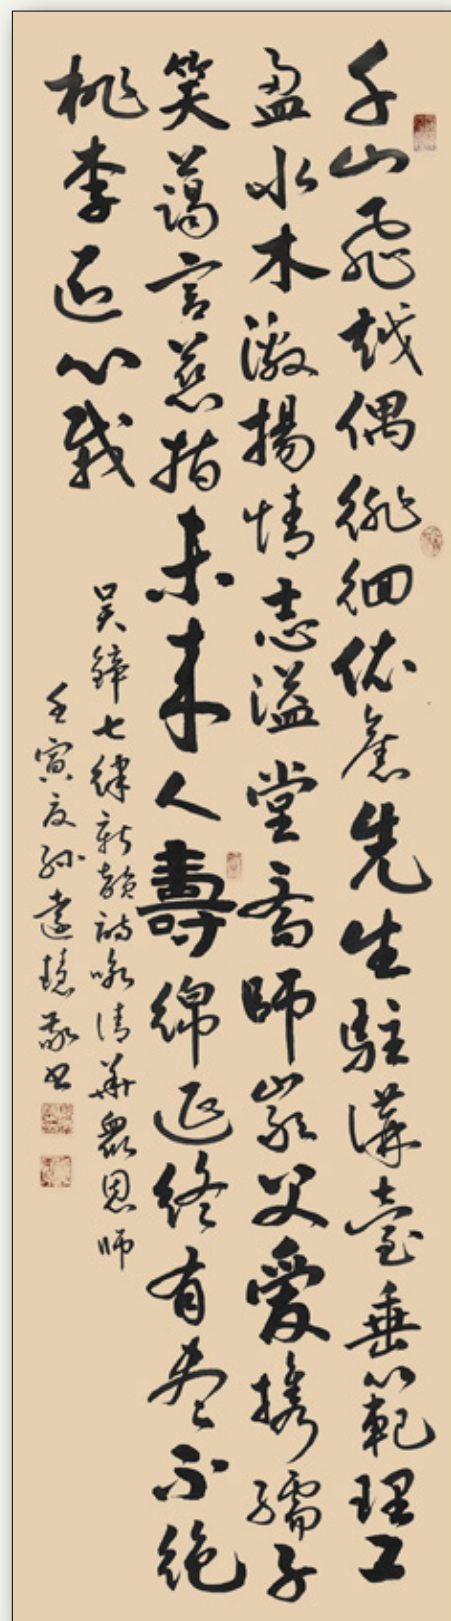 千山飛越偶徘徊依舊先生駐講臺垂範理工
盈水木激揚情志溢堂齋師嚴父愛攜孺子
笑藹言慈指未來人壽綿延終有盡不絕
桃李匠心栽
吳 七律新韻詩詠清華眾恩師
壬寅夏孫遠 敬書